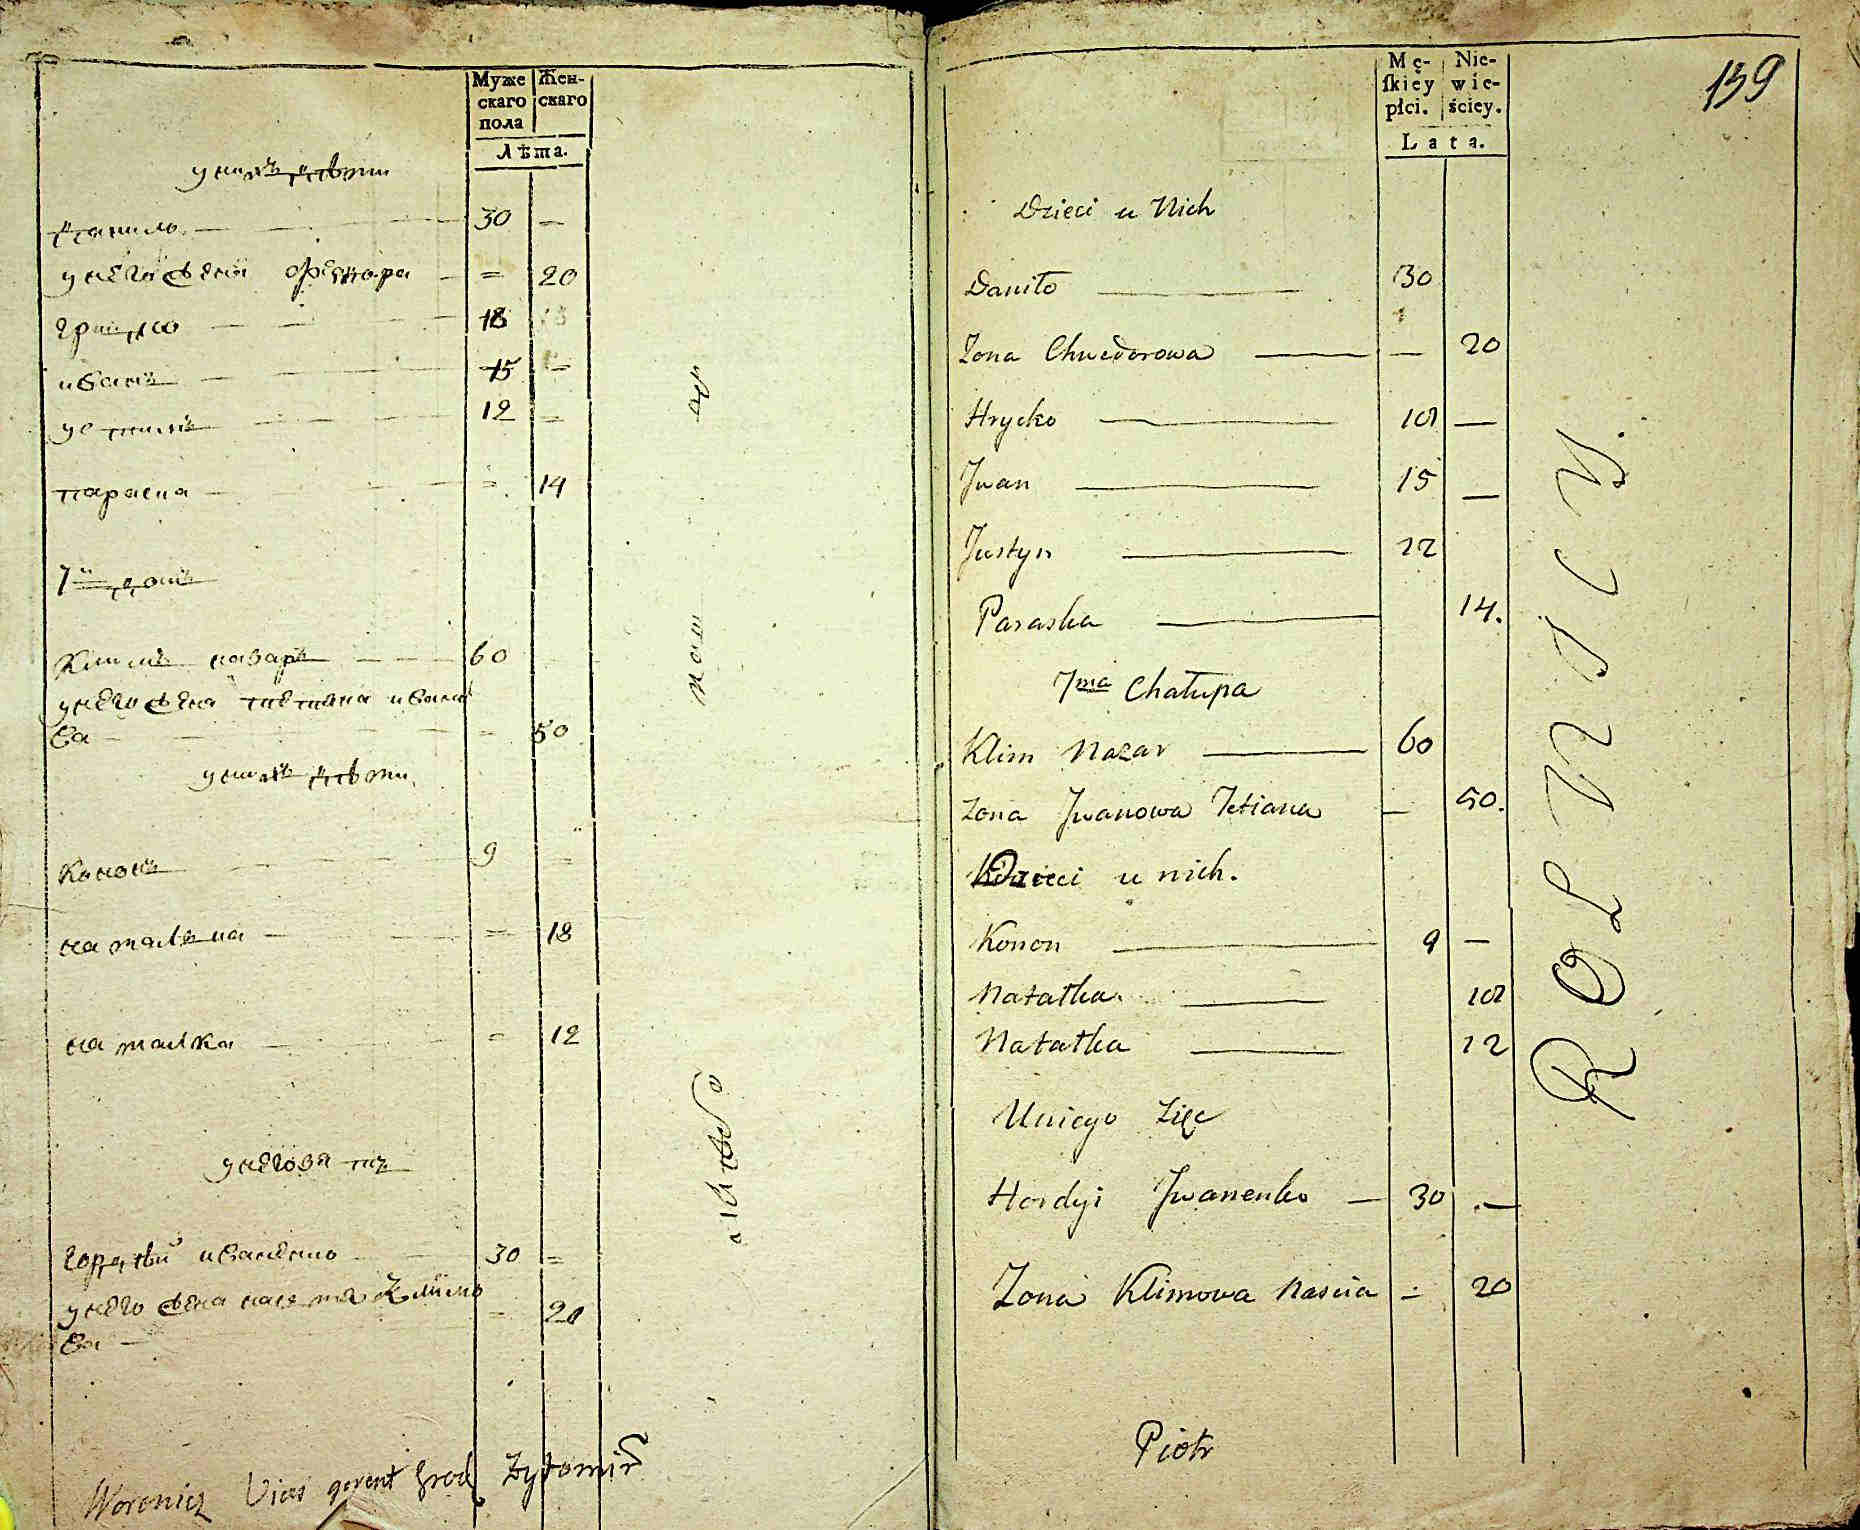 Муже Жен-
скаго скаго
пола
Лѣта.
у нихъ дѣти
данило — 30 —
у него жена феѡдора — = 20
грицко — 18
иванъ — 15 —
устинъ — 12 =
параска — = 14
7й домъ
Климъ назаръ — 60
у него жена тетіана ивано
ва — = 50
у нихъ дѣти
Кононъ — 9 =
наталка — = 18
наталка — = 12
у него зять
гордѣй иваненко 30 =
у него жена настя Климо
ва — = 20
Woronicz Vices gerent Grod Żytomir
139
Mę- Nie-
ſkiey wie-
płci. ściey.
Lata.
Dzieci u Nich
Daniło — 30
Zona Chwedorowa — — 20
Hrycko — 18 —
Jwan — 15 —
Justyn — 12
Paraska — 14.
7ma Chałupa
Klim Nazar — 60
Zona Jwanowa Tetiana — 50.
Dzieci u nich.
Konon — 9 —
Natałka — 18
Natałka — 12
U niego Zięć
Hordyi Jwanenko — 30 —
Zona Klimowa Nascia = 20
Piotr